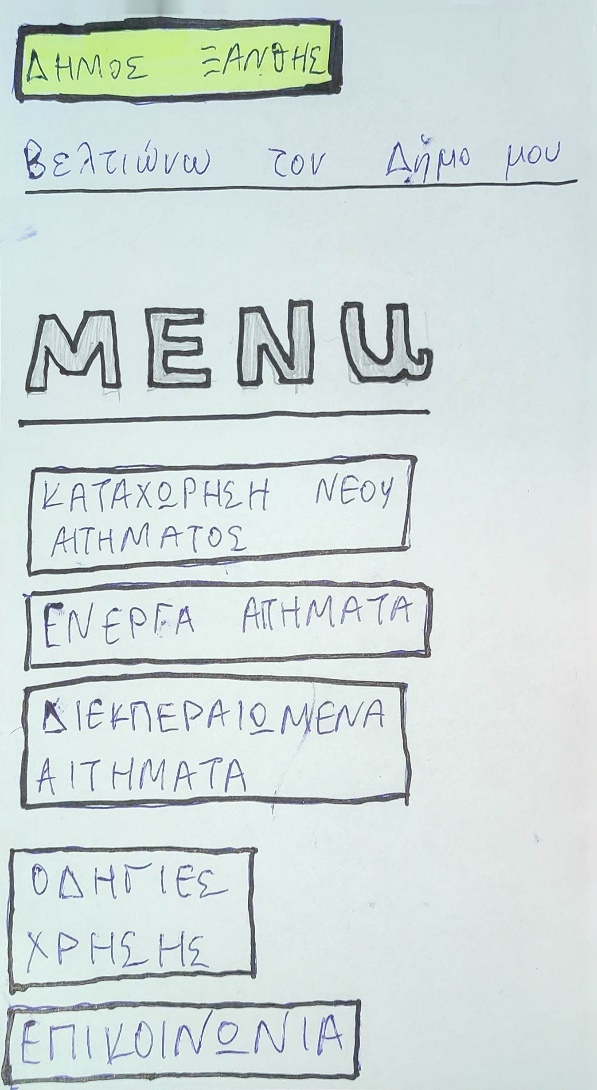 ΔΗΜΟΣ ΞΑΝΘΗΣ
Βελτιώνω τον Δήμο μου
MENU
ΚΑΤΑΧΩΡΗΣΗ ΝΕΟΥ
ΑΙΤΗΜΑΤΟΣ
ΕΝΕΡΓΑ ΑΙΤΗΜΑΤΑ
ΔΙΕΚΠΕΡΑΙΩΜΕΝΑ
ΑΙΤΗΜΑΤΑ
ΟΔΗΓΙΕΣ
ΧΡΗΣΗΣ
ΕΠΙΚΟΙΝΩΝΙΑ